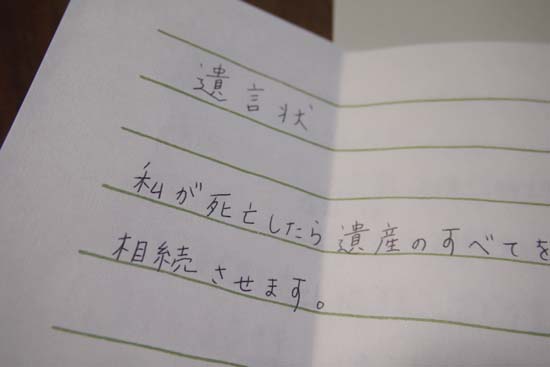 遺言状
私が死亡したら遺産のすべてを
相続させます。